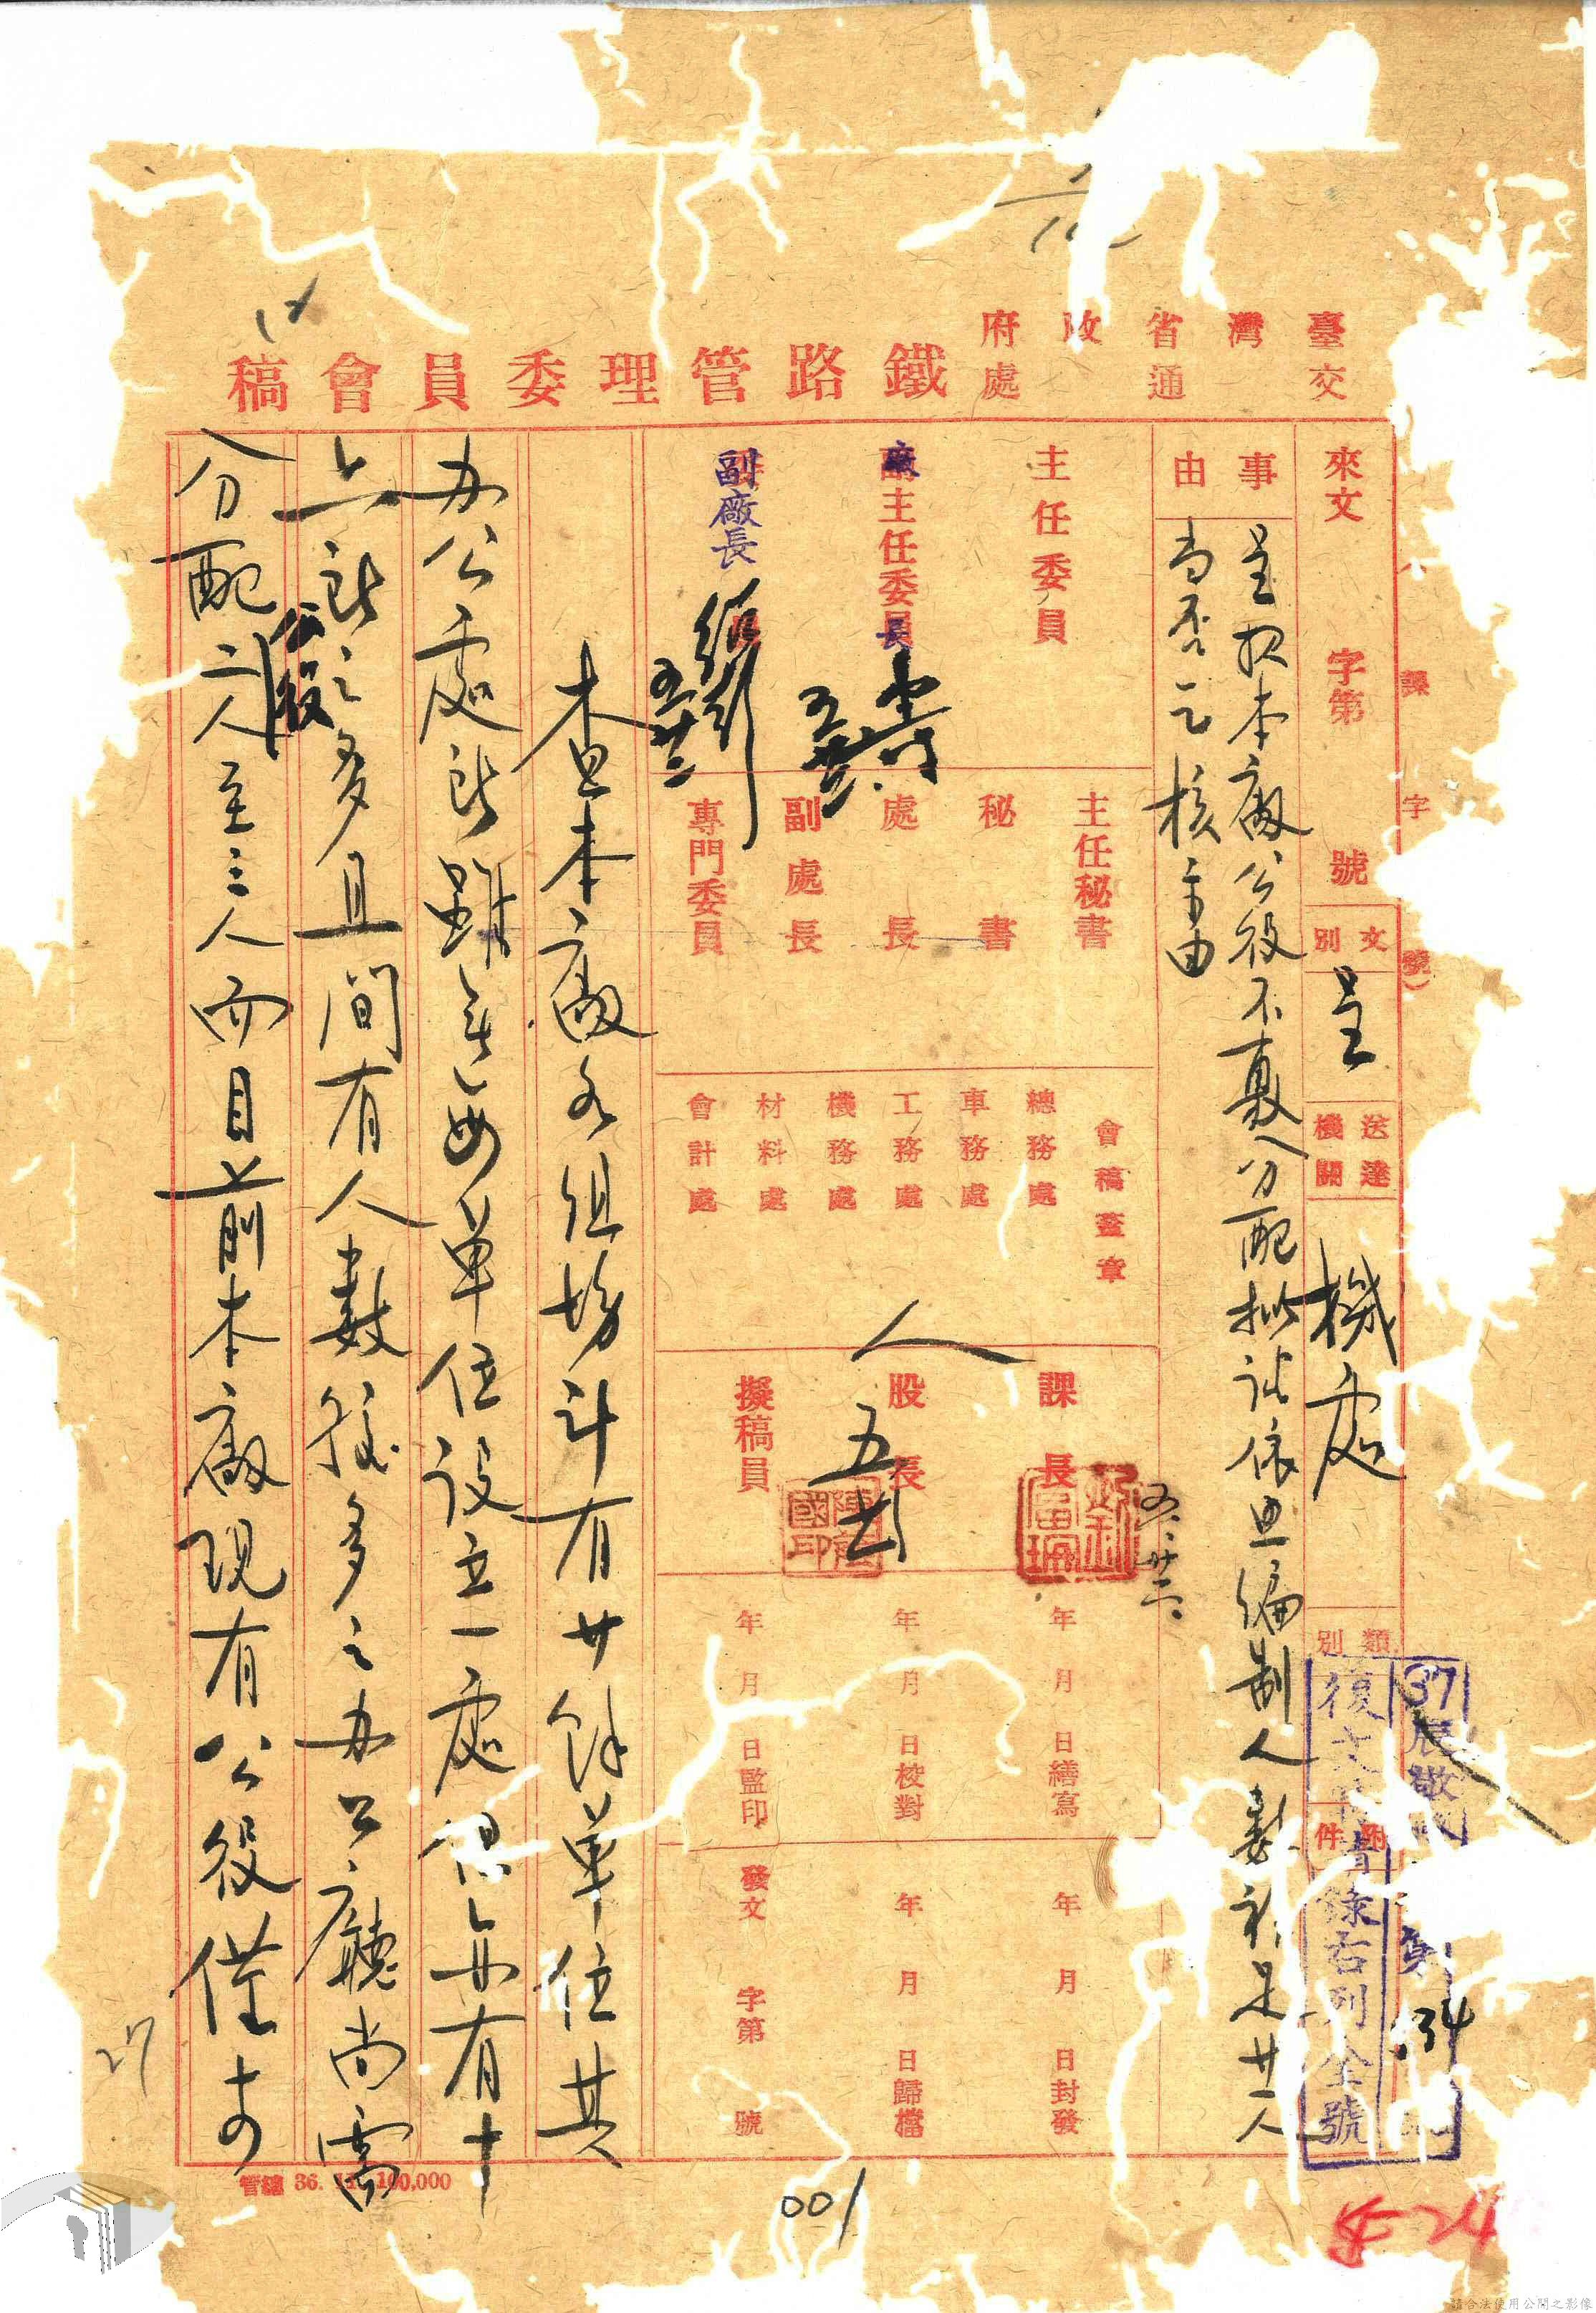 臺灣省政府
交通處
鐵路管理委員會稿
課
字
號）
來文
字第
號
文別
呈
送達機關
機處
類別
附件
37辰敬
34
復文
請錄右列全號
事由
呈報本廠公役不敷分配擬請依照編制人數補足廿一人
當否乞核示由
主任委員
廠
主任委員
長
副廠長
五廿二
主任秘書
秘書
處長
副處長
專門委員
會稿蓋章
總務處
車務處
工務處
機務處
材料處
會計處
課長
股長
擬稿員
五.廿二.
年月日繕寫
年月日校對
年月日監印
年月日封發
年月日歸檔
發文字第號
查本廠各組場計有廿餘單位其
办公處所雖無每單位設立一處但亦有十
六所之多且間有人數較多之办公廳尚需
公役
分配二人至三人而目前本廠現有公役僅十
管總 36. 11. 100,000
001
27
5-24
請合法使用公開之影像